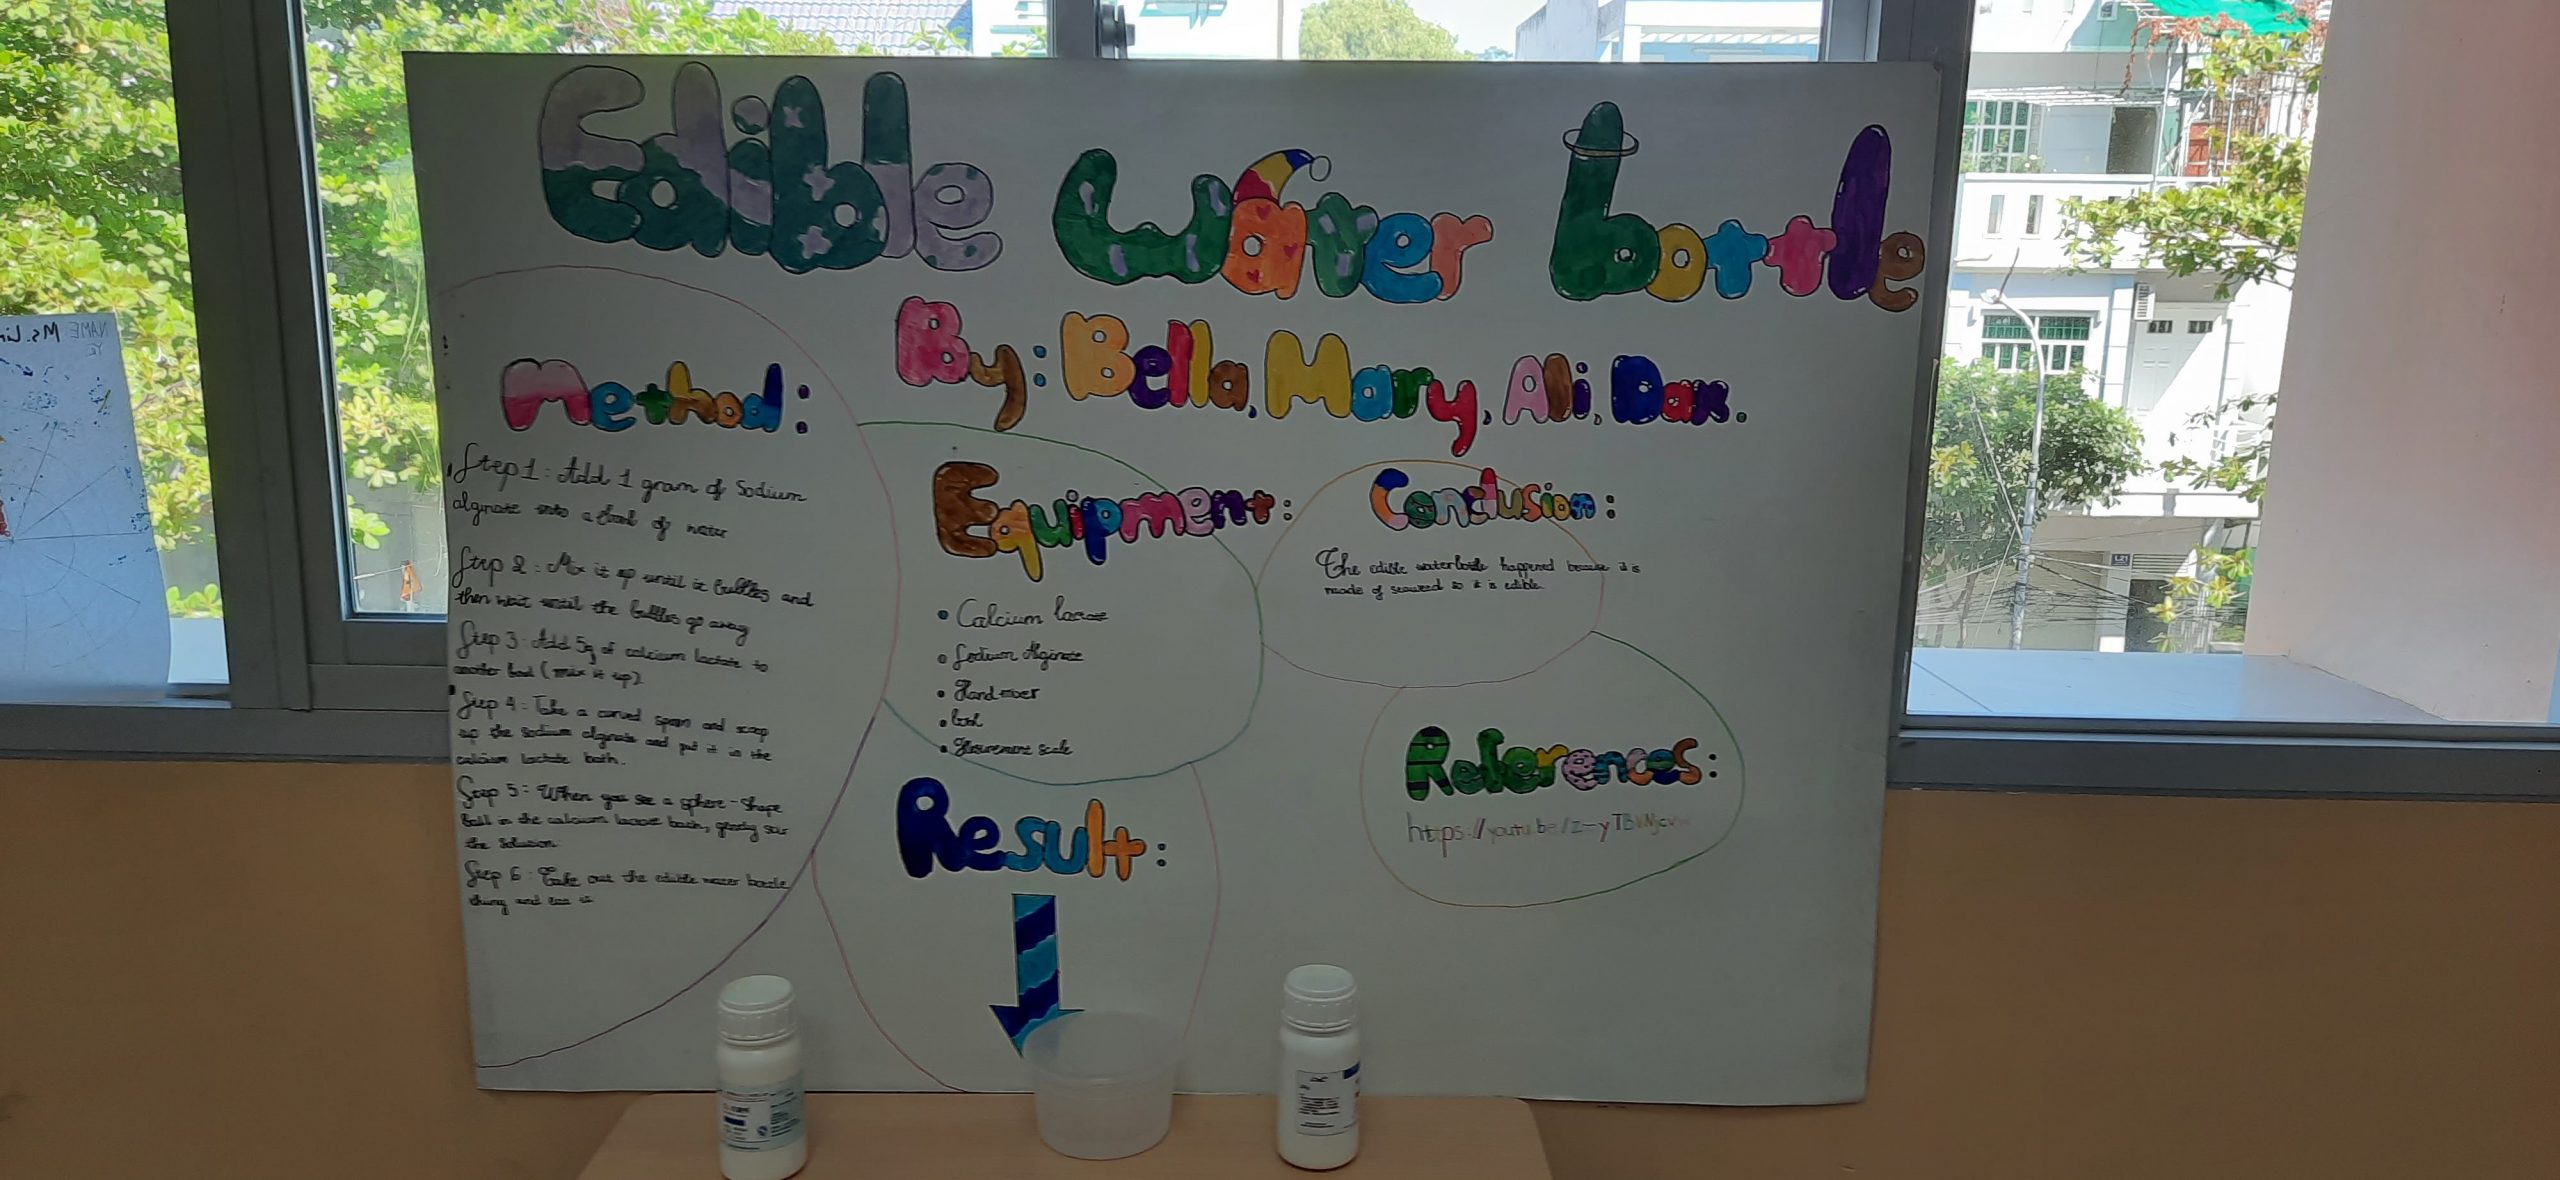 Edible water bottle
By: Bella, Mary, Ali, Dax.
Method:
Step 1: Add 1 gram of Sodium
alginate into a bowl of water
Step 2: Mix it up until it bubbles and
then wait until the bubbles go away
Step 3: Add 5g of calcium lactate to
another bowl (mix it up)
Step 4: Take a curved spoon and scoop
up the sodium alginate and put it in the
calcium lactate bath.
Step 5: When you see a sphere-shape
ball in the calcium lactate bath, gently stir
the solution
Step 6: Take out the edible water bottle
thing and eat it
Equipment:
Calcium lactate
Sodium Alginate
Hand mixer
bowl
Measurement scale
Conclusion:
The edible water bottle happened because it is
made of seaweed so it is edible.
Result:
References:
https://youtu.be/z-yTB
NAME Ms.
L21